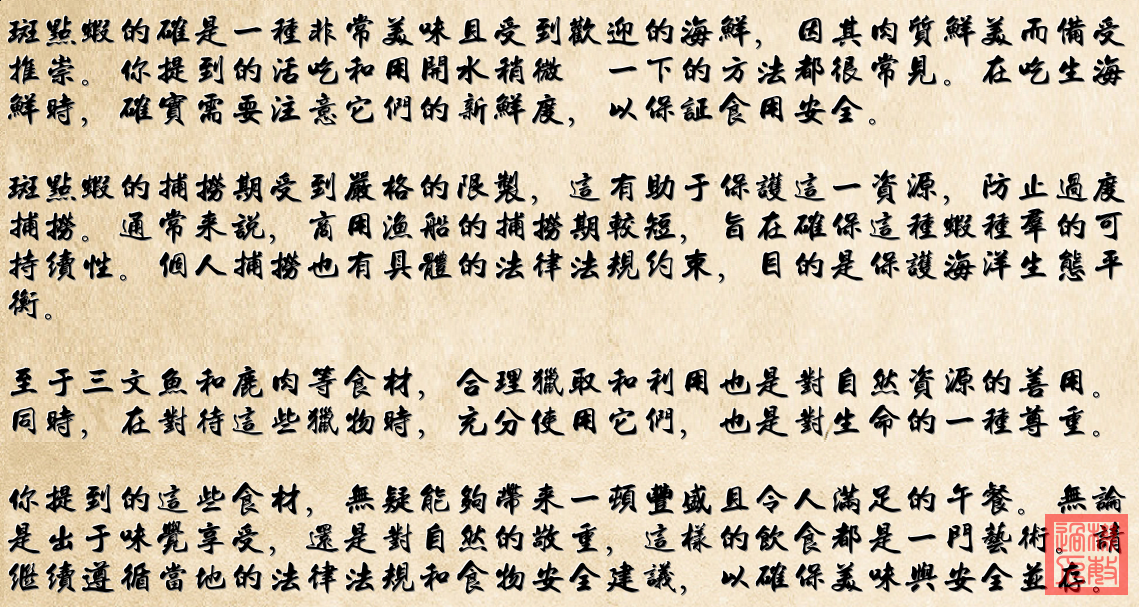 斑點蝦的確是一種非常美味且受到歡迎的海鮮，因其肉質鮮美而備受
推崇。你提到的活吃和用開水稍微　一下的方法都很常見。在吃生海
鮮時，確實需要注意它們的新鮮度，以保証食用安全。
斑點蝦的捕撈期受到嚴格的限製，這有助于保護這一資源，防止過度
捕撈。通常来説，商用漁船的捕撈期較短，旨在確保這種蝦種羣的可
持續性。個人捕撈也有具體的法律法規約束，目的是保護海洋生態平
衡。
至于三文魚和鹿肉等食材，合理獵取和利用也是對自然資源的善用。
同時，在對待這些獵物時，充分使用它們，也是對生命的一種尊重。
你提到的這些食材，無疑能夠帶来一頓豐盛且令人滿足的午餐。無論
是出于味覺享受，還是對自然的敬重，這樣的飲食都是一門藝術。請
繼續遵循當地的法律法規和食物安全建議，以確保美味與安全並存。